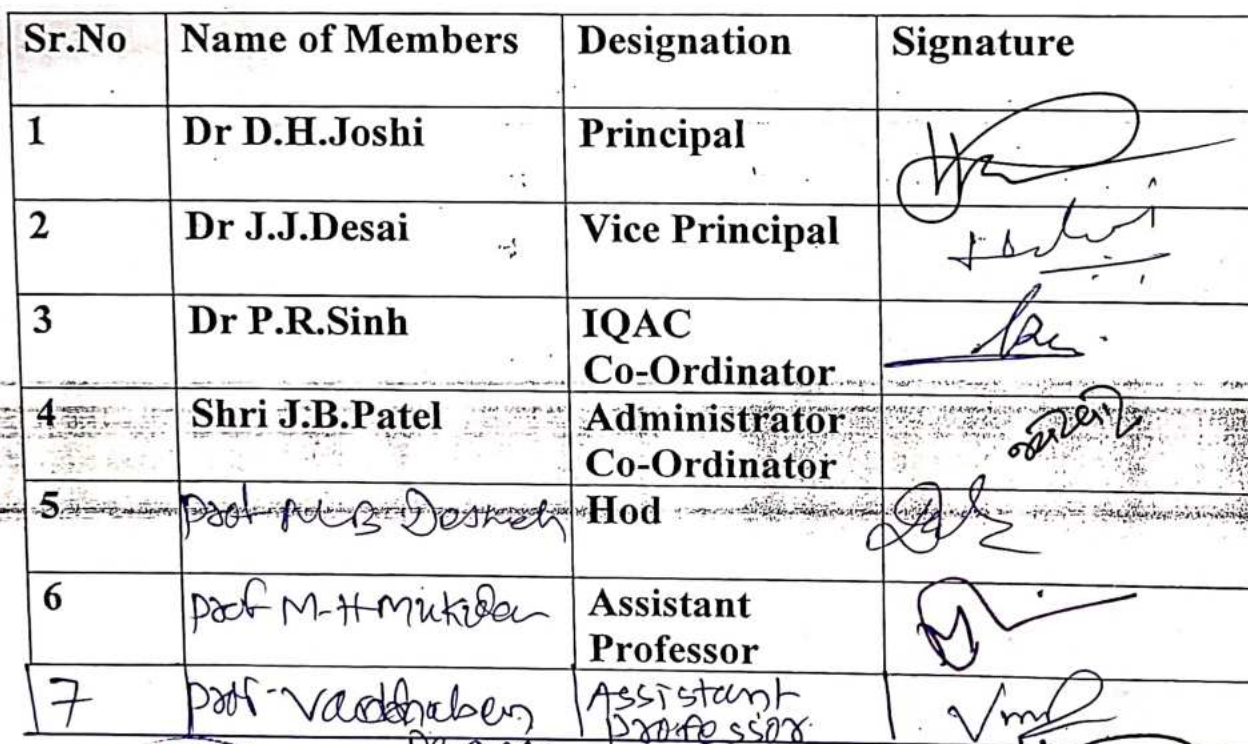 Sr.No Name of Members Designation Signature
1 Dr D.H.Joshi Principal
2 Dr J.J.Desai Vice Principal
3 Dr P.R.Sinh IQAC
Co-Ordinator
4 Shri J.B.Patel Administrator
Co-Ordinator
5 Prof M B Hod
6 Prof M-H- Assistant
Professor
7 Prof- Assistant
professor